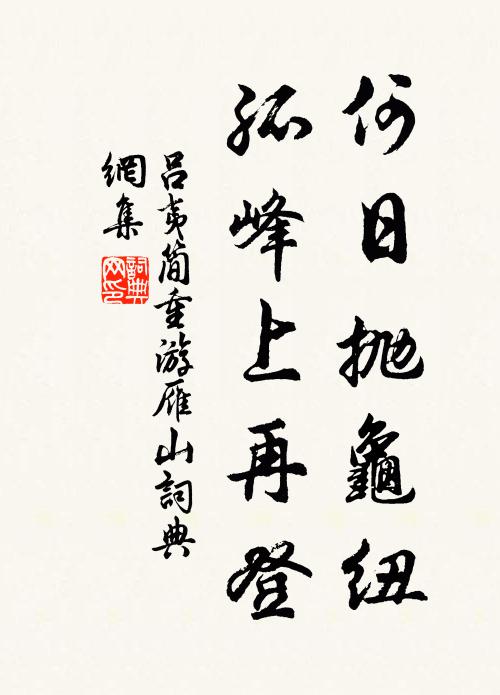 何日抛龜紐
孤峰上再登
呂夷簡重游雁山詞典
網集
詞典
网印